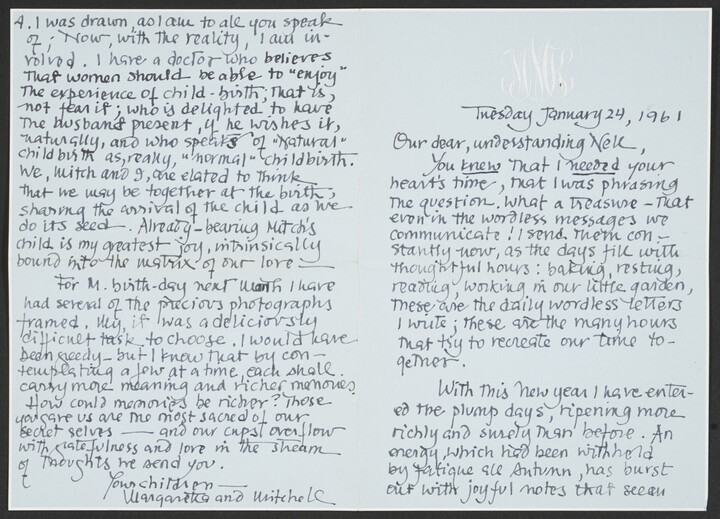 4. I was drawn, as I am to all you speak
of; Now, with the reality, I am in-
volved. I have a doctor who believes
that women should be able to "enjoy"
the experience of child-birth; that is,
not fear it; who is delighted to have
the husband present, if he wishes it,
naturally, and who speaks of "natural"
childbirth as, really, "normal" childbirth.
We, Mitch and I, are elated to think
that we may be together at the birth,
sharing the arrival of the child as we
do its seed. Already-bearing Mitch's
child is my greatest joy, intrinsically
bound into the matrix of our love —
For M. birth-day next month I have
had several of the precious photographs
framed. My, it was a deliciously
difficult task to choose. I would have
been greedy - but I know that by con-
templating a few at a time, each shall
carry more meaning and richer memories.
How could memories be richer? Those
you gave us are the most sacred of our
secret selves — and our cups overflow
with gratefulness and love in the stream
of thoughts we send you.
Your children —
Margaretta and Mitchell
Tuesday January 24, 1961
Our dear, understanding Nell,
You knew that I needed your
heart's time, that I was phrasing
the question. What a treasure - that
even in the wordless messages we
communicate! I send them con-
stantly now, as the days fill with
thoughtful hours: baking, resting,
reading, working in our little garden,
these are the daily wordless letters
I write; these are the many hours
that try to recreate our time to-
gether.
With this New year I have enter-
ed the plump days, ripening more
richly and surely than before. An
energy, which had been withheld
by fatigue all Autumn, has burst
out with joyful notes that seem